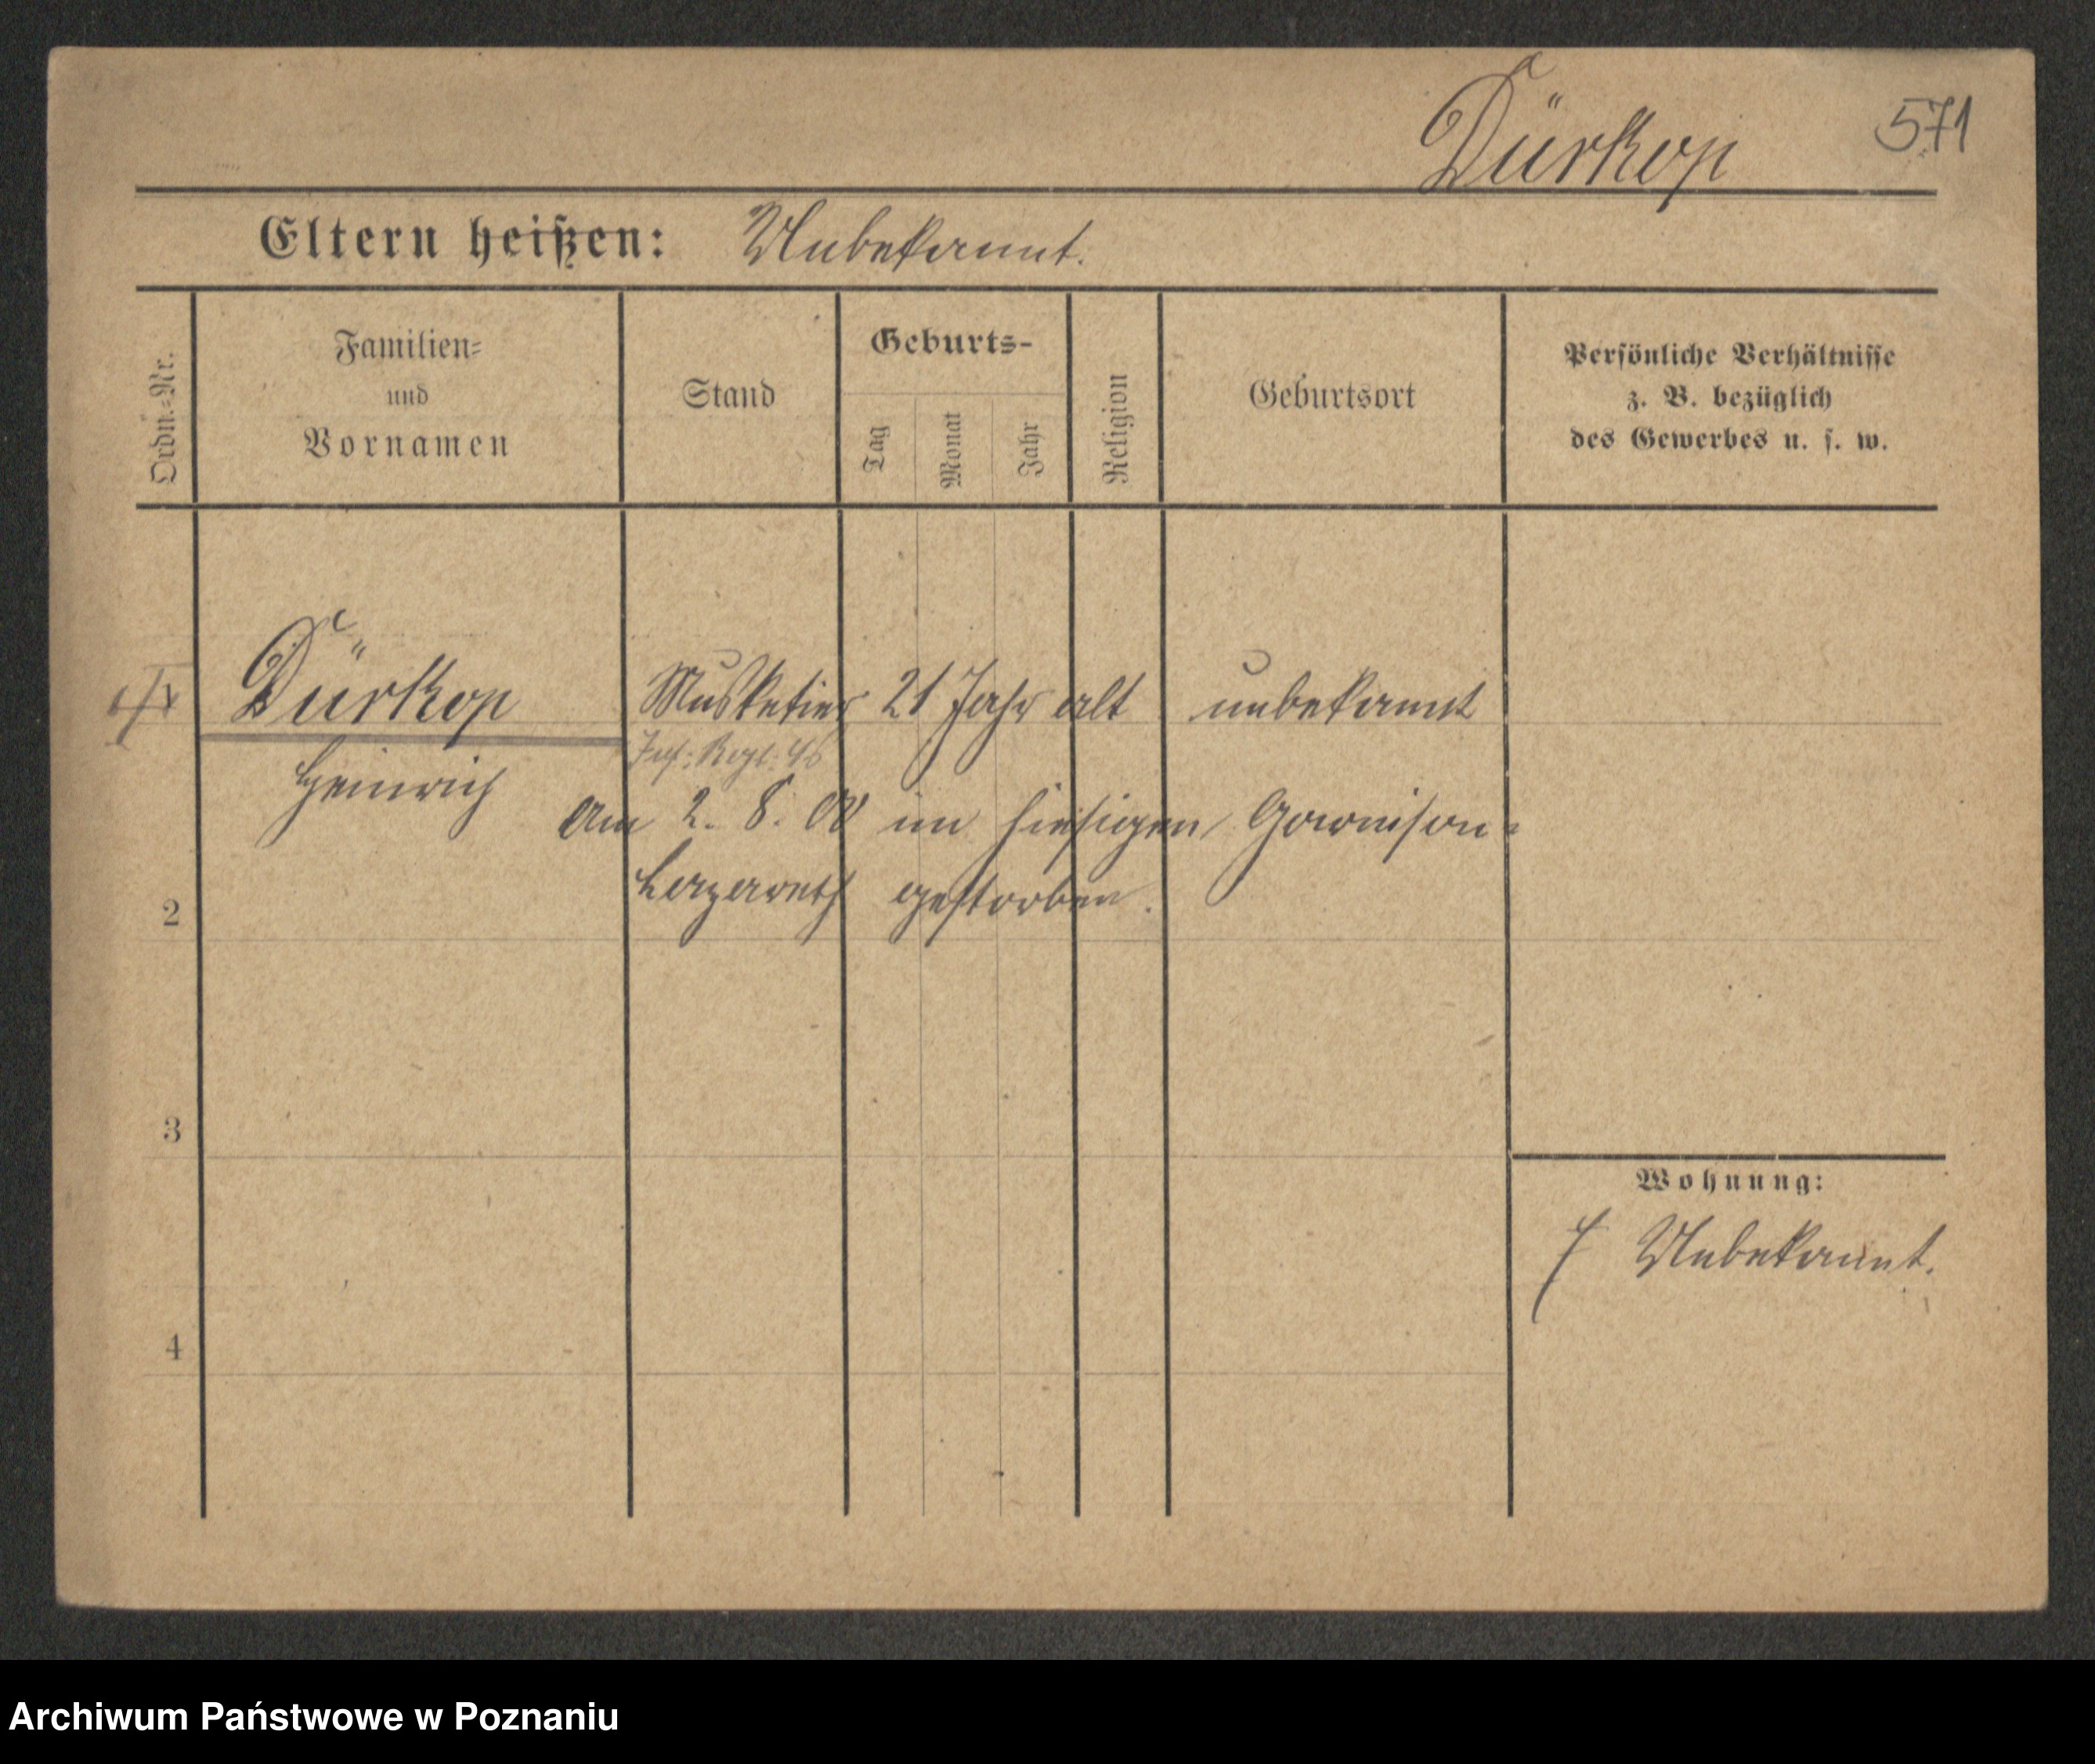 Dürkop 571
Eltern heißen: Unbekannt.
Ordn.=Nr.
Familien=
und
Vornamen
Stand
Geburts-
Tag
Monat
Jahr
Religion
Geburtsort
Persönliche Verhältnisse
z. B. bezüglich
des Gewerbes u. s. w.
Dürkop Musketier 21 Jahr alt unbekannt
Inf: Regt: 46
Heinrich
Am 2. 8. 00 im hiesigen Garnison=
Lazareth gestorben.
2
3
Wohnung:
Unbekannt.
4
Archiwum Państwowe w Poznaniu